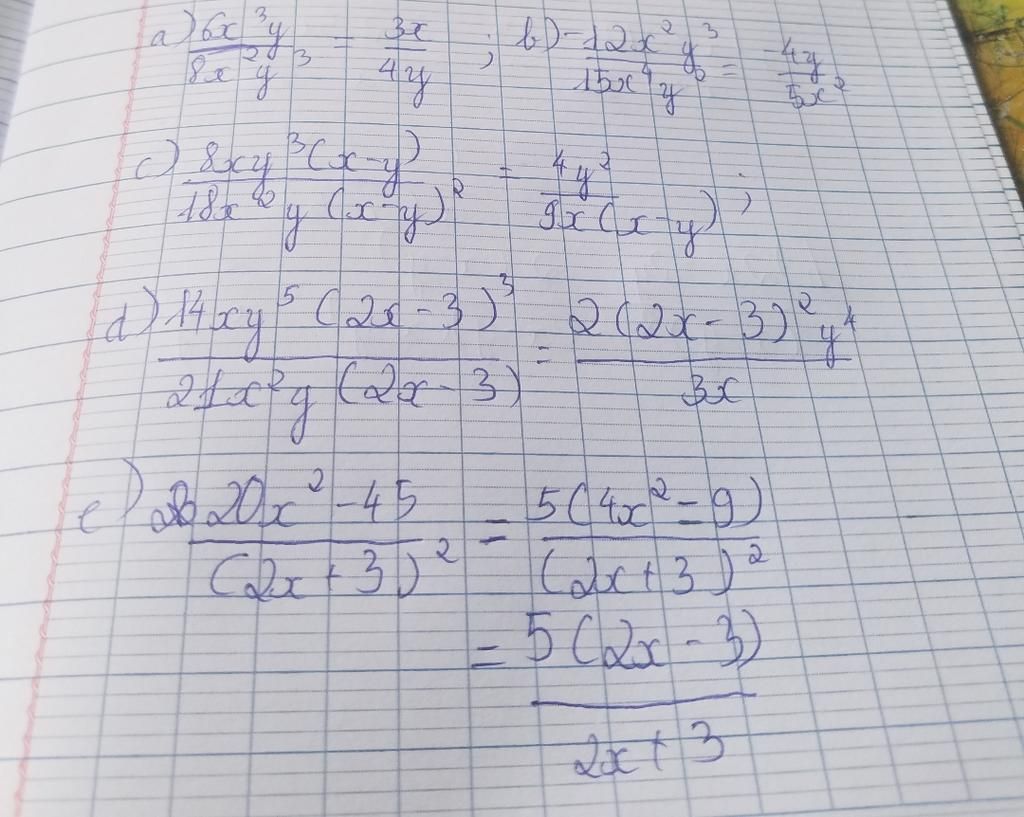 a) 6x³y / 8x²y³ = 3x / 4y ; b) -12x²y³ / 15x⁴y² = -4y / 5x²
c) 8xy³(x-y) / 18x²y(x-y)² = 4y² / 9x(x-y) ;
d) 14xy⁵(2x-3)³ / 21x²y(2x-3) = 2(2x-3)²y⁴ / 3x
e) 20x²-45 / (2x+3)² = 5(4x²-9) / (2x+3)²
= 5(2x-3) / 2x+3